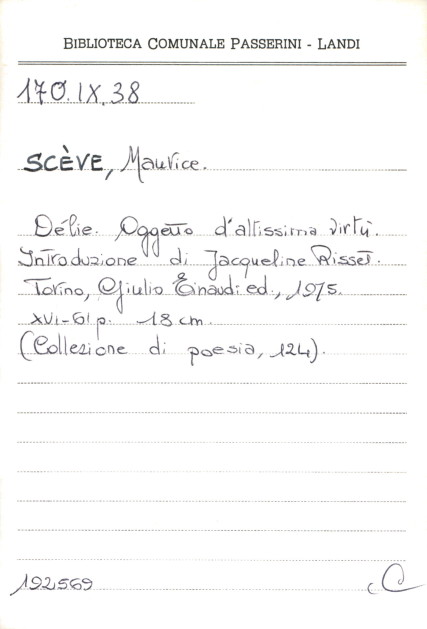 BIBLIOTECA COMUNALE PASSERINI - LANDI
170.IX.38
SCÈVE, Maurice.
Délie. Oggetto d'altissima virtù.
Introduzione di Jacqueline Risset.
Torino, Giulio Einaudi ed., 1975.
XVI-61 p. 18 cm.
(Collezione di poesia, 124).
192569 C